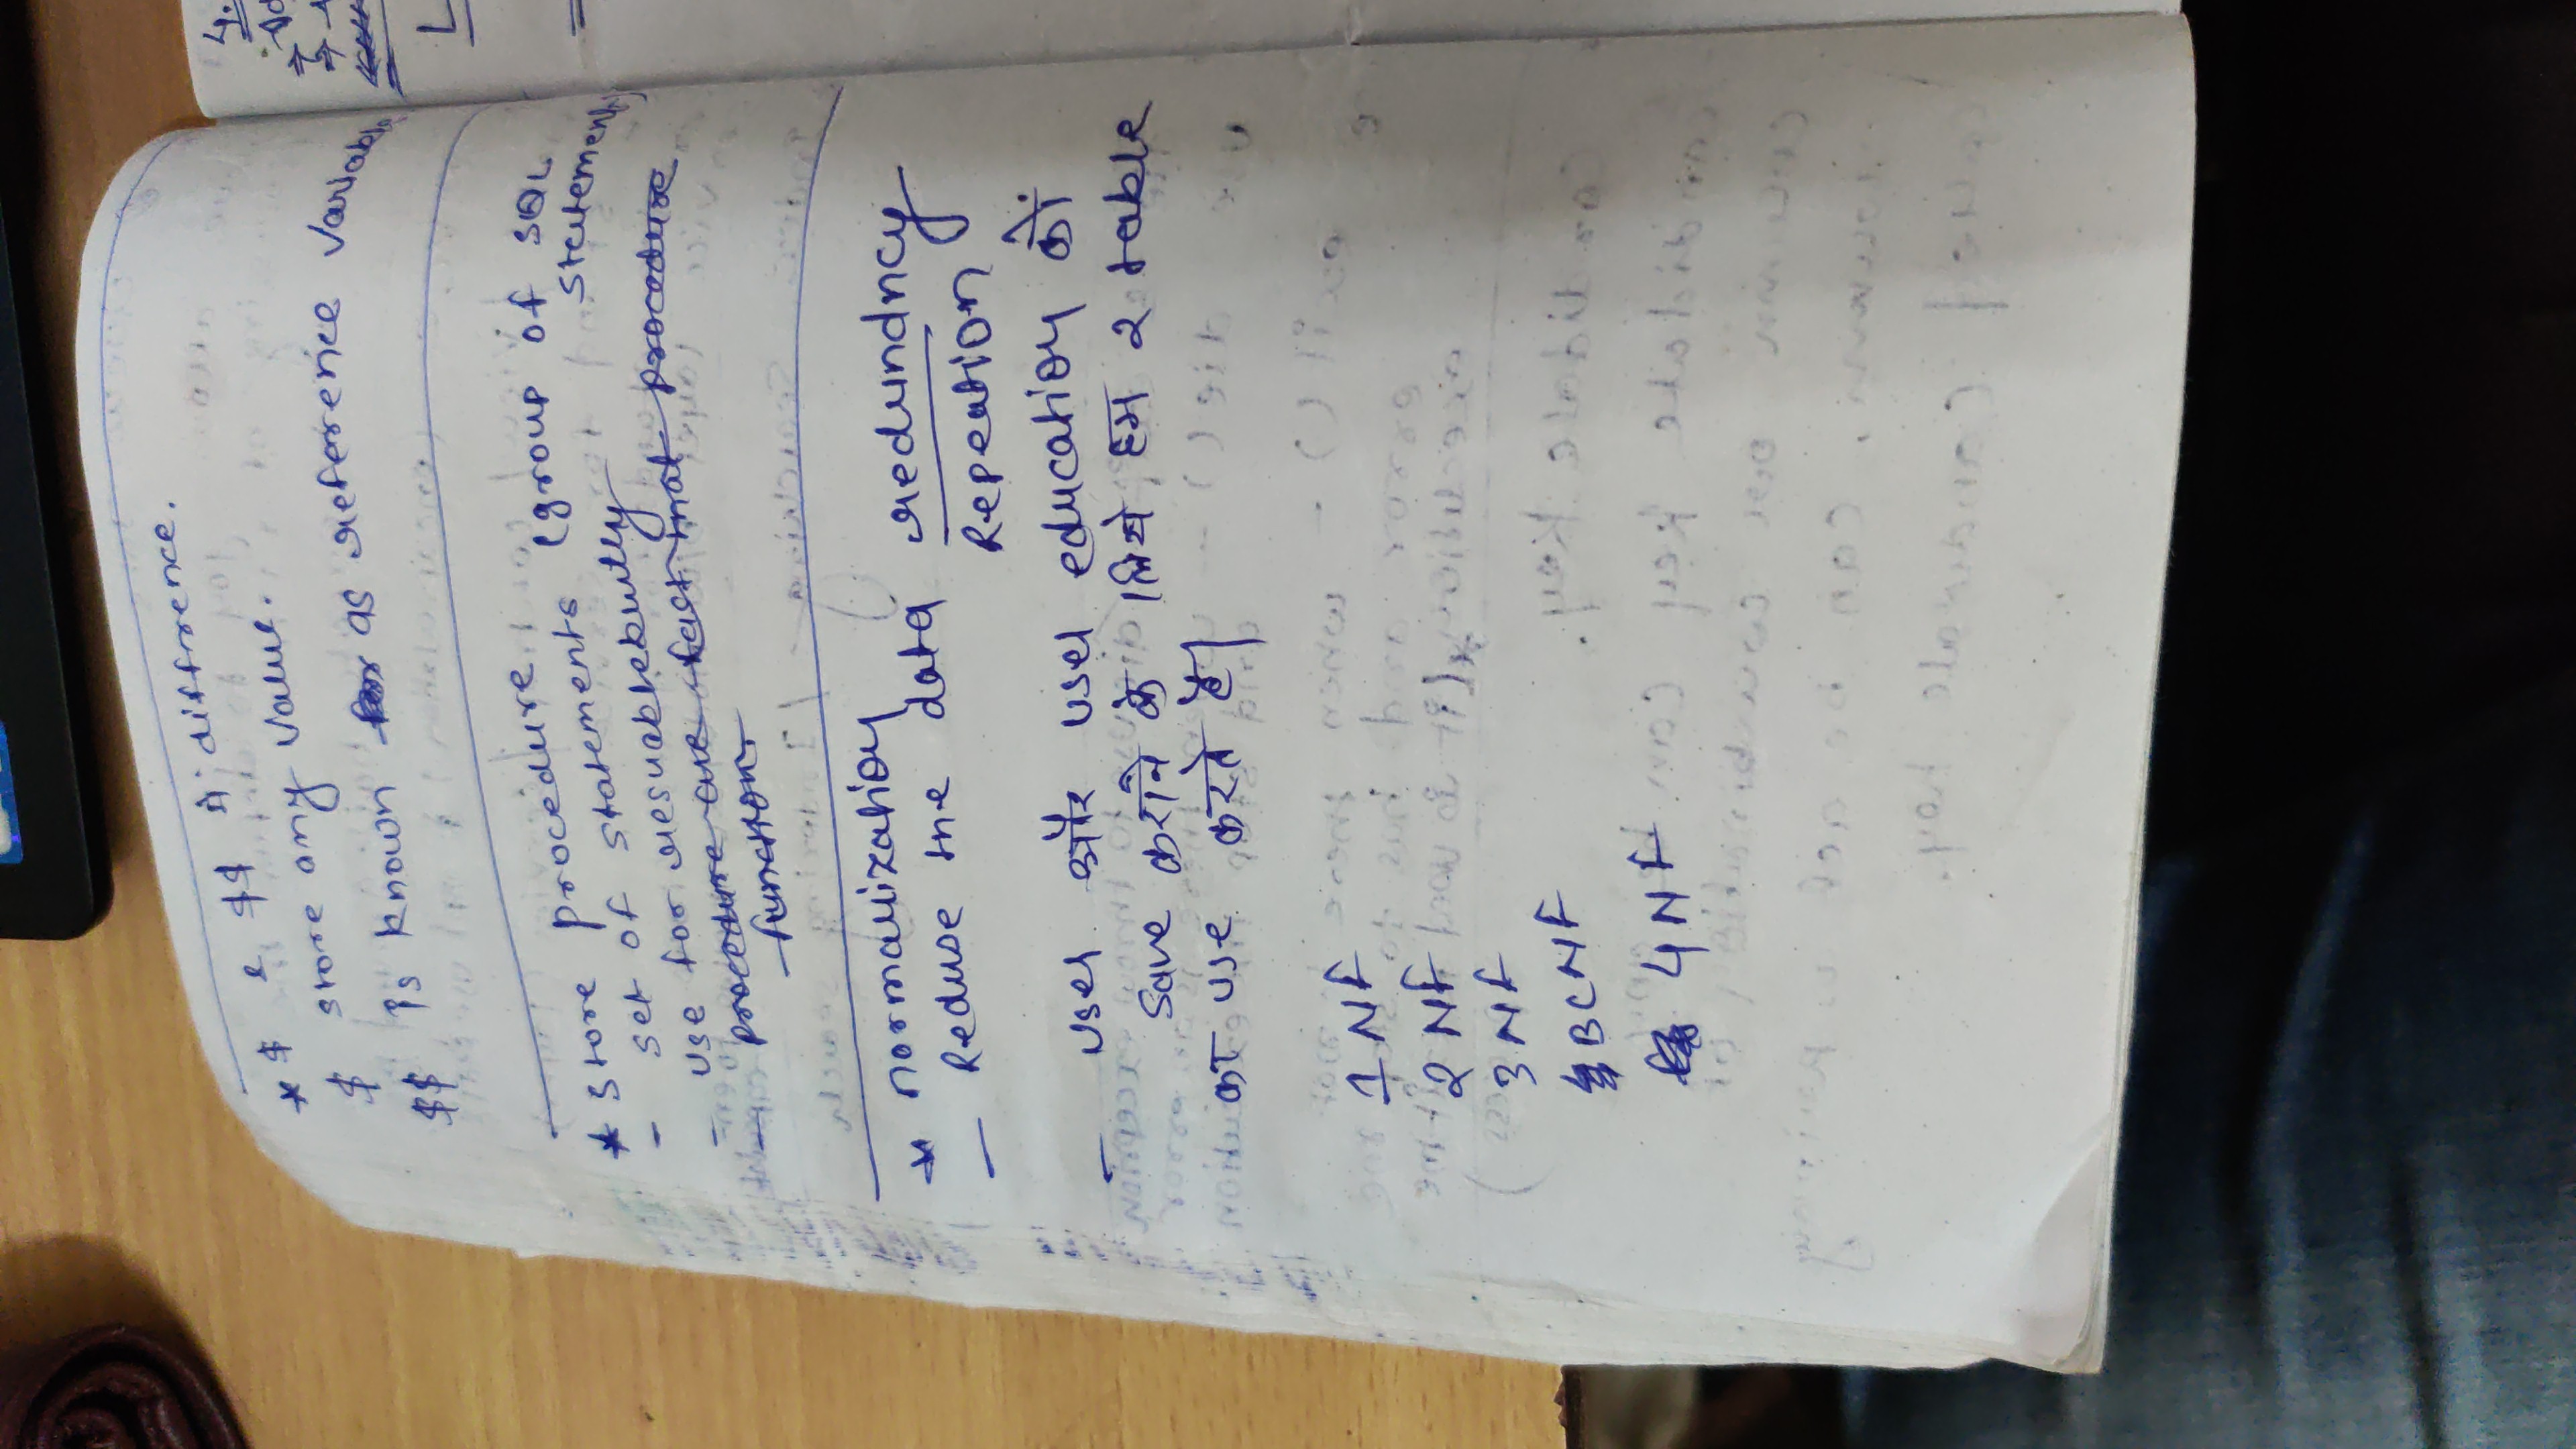 * $ & $$ में difference.
$ store any value.
$$ is known as reference variable
* Store procedure
- set of statements (group of SQL
statements)
- use for
- procedure are fast that procedure
function.
* normalization
- Reduse the data redundncy
Repeation
- user और user education को
save कराने के लिये हम 2 table
का use करते है|
1 NF
2 NF
3 NF
BCNF
4 NF
4.